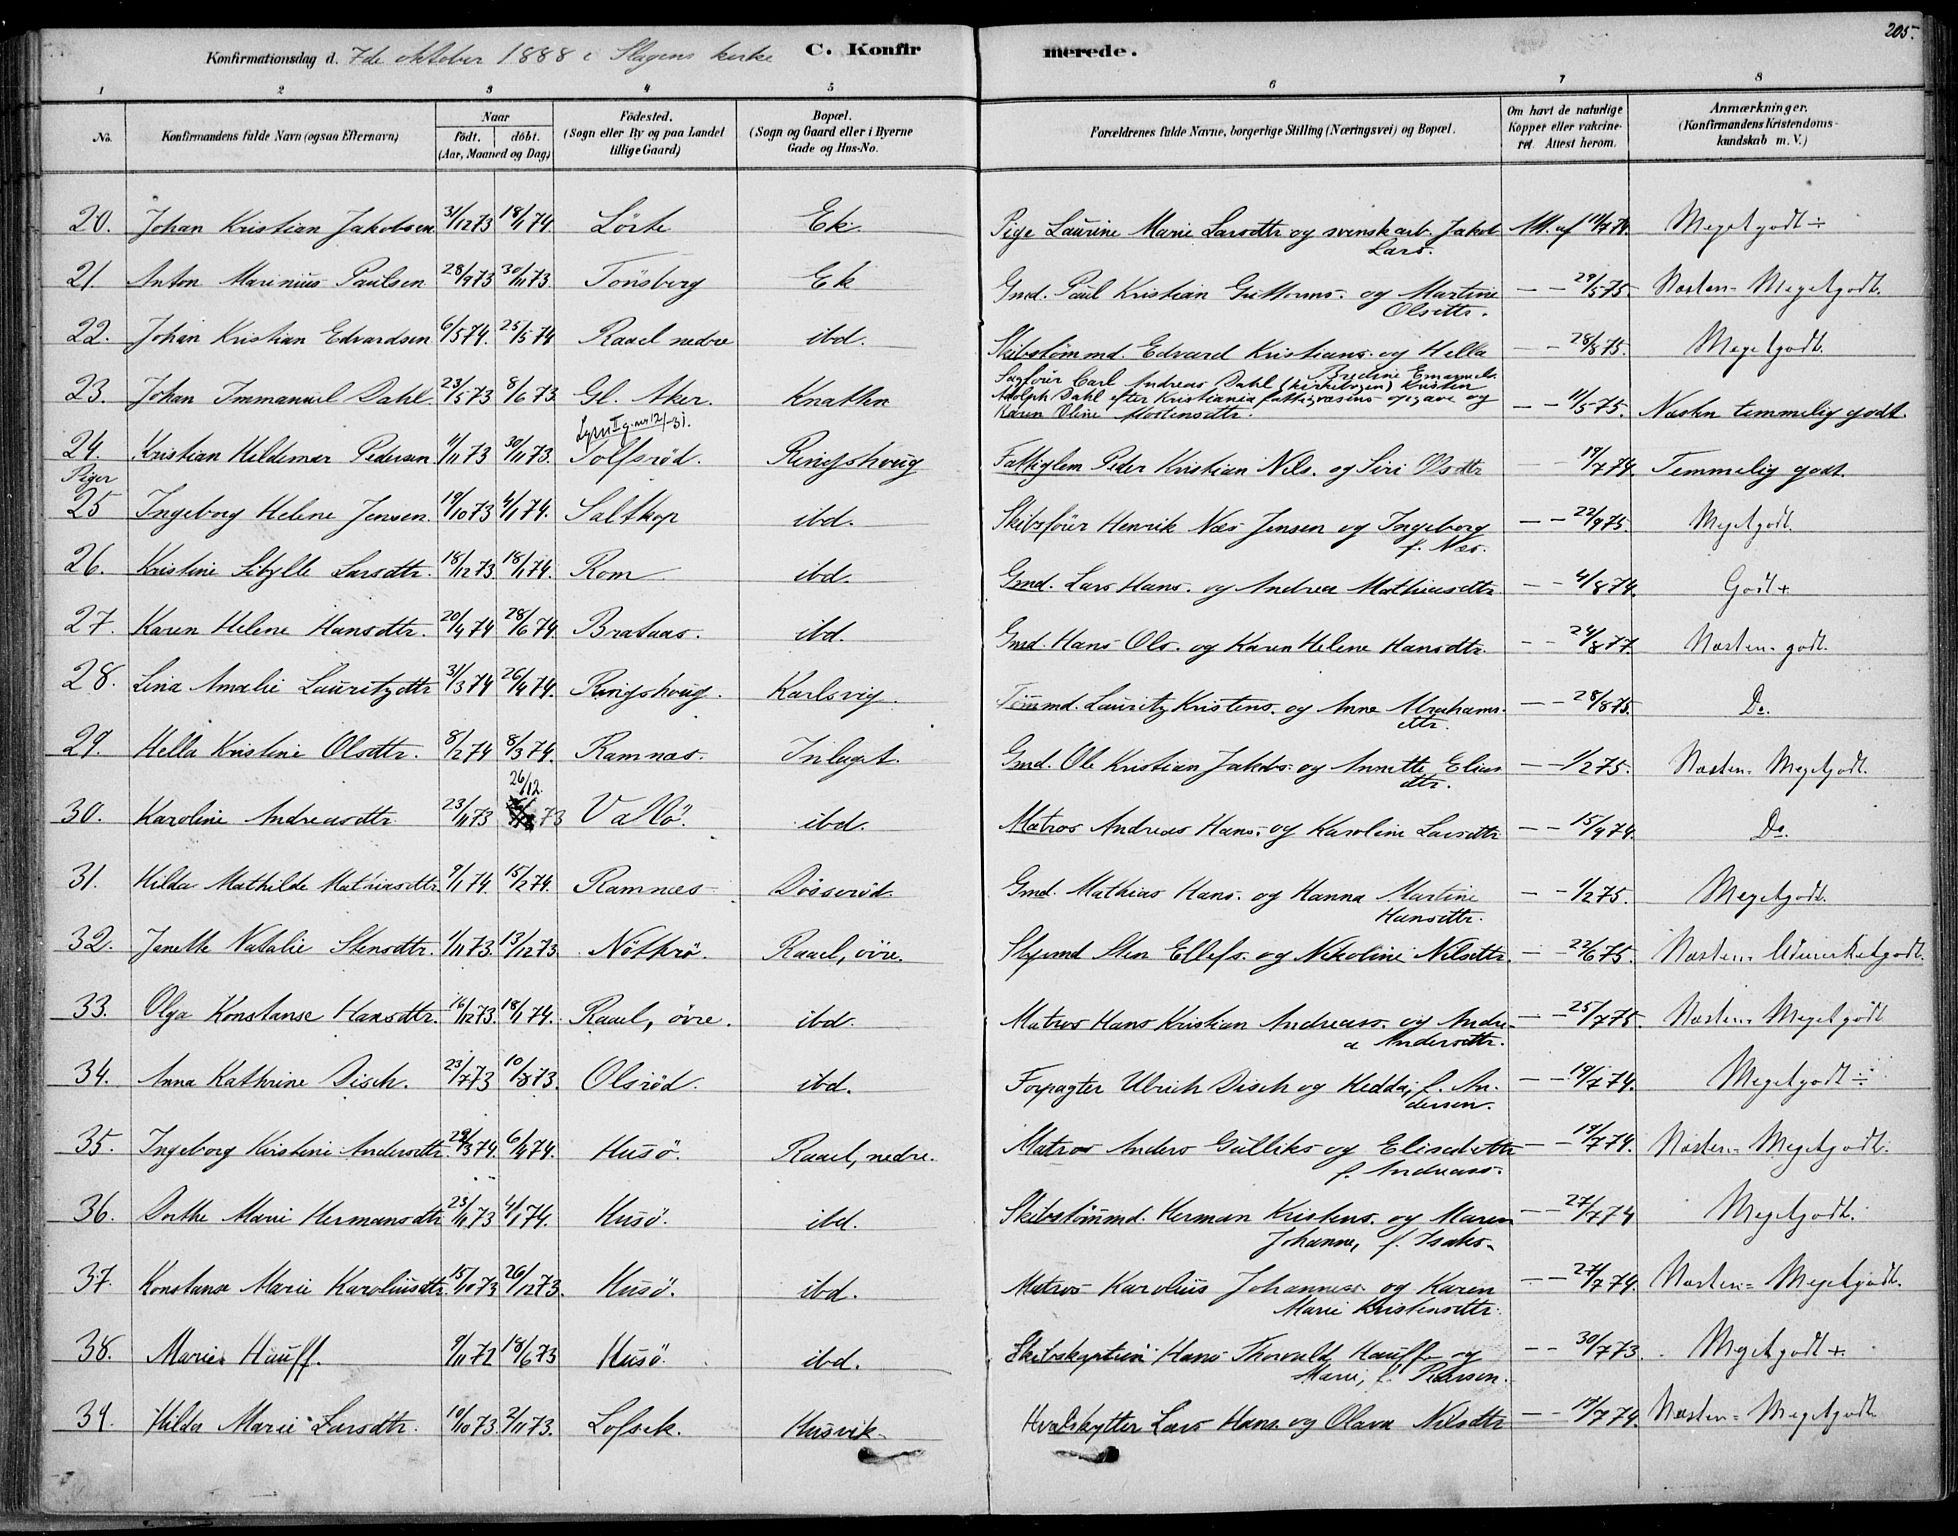 205.
Konfirmationsdag d. 7de oktober 1888 i Slagens kirke C. Konfirmerede.
1 2 3 4 5 6 7 8
No. Konfirmandens fulde Navn (ogsaa Efternavn) Naar født. døbt. (Aar, Maaned og Dag) Fødested. (Sogn eller By og paa Landet tillige Gaard) Bopæl. (Sogn og Gaard eller i Byerne Gade og Hus-No. Forældrenes fulde Navne, borgerlige Stilling (Næringsvei) og Bopæl. Om havt de naturlige Kopper eller vakcineret. Attest herom. Anmærkninger. (Konfirmandens Kristendomskundskab m. V.)
20. Johan Kristian Jakobsen 31/12 73 18/1 74. Lörte Ek. Pige Laurine Marie Larsdtr og svensk arb. Jakob Lars. M. af 14/7 74. Megetgodt ÷
21 Anton Marinius Paulsen 28/9 73 30/11 73. Tönsberg Ek Gmd. Paul Kristian Guttorms. og Martine Olsdtr. — — 29/5 75. Næsten- Megetgodt.
22. Johan Kristian Edvardsen 6/5 74. 25/5 74 Raael nedre ibd. Skibstömmd. Edvard Kristians. og Hella Bredine Emanuels. — — 28/8 75. Megetgodt.
23. Johan Immanuel Dahl. 23/5 73 8/6 73. Gl. Aker. Knatten Sagförer Carl Andreas Dahl (kirkebogen) Kristen Adolph Dahl efter Kristiania fattigvæsens opgave og Karen Oline Mortensdtr. — — 11/5 75. Næsten temmelig godt.
24. Kristian Hildemar Pedersen 11/11 73 30/11 73. Tolfsröd. Ringshoug Fattiglem Peder Kristian Nils. og Siri Olsdtr — — 19/7 74. Temmelig godt.
Piger
25 Ingeborg Helene Jensen. 19/10 73 4/1 74. Saltkop ibd. Skibsförer Henrik Næs Jensen og Ingeborg f. Næs. — — 22/9 75. Megetgodt.
26. Kristine Sibylle Larsdtr. 18/12 73 18/1 74. Rom ibd. Gmd. Lars Hans. og Andrea Mathiasdtr — — 4/8 74. Godt +
27. Karen Helene Hansdtr. 20/4 74 28/6 74. Brataas. ibd. Gmd. Hans Ols. og Karen Helene Hansdtr. — — 24/8 77. Næsten- godt.
28. Lina Amalie Lauritzdtr 31/3 74 26/4 74. Ringshoug. Karlsvig. Tömmd. Lauritz Kristens. og Anne Abrahamsdtr. — — 28/8 75. Do.
29. Hella Kristine Olsdtr. 8/2 74 8/3 74. Ramnæs. Inlaget. Gmd. Ole Kristian Jakobs. og Annette Eliasdtr. — — 1/2 75. Næsten- Megetgodt.
30. Karoline Andreasdtr. 23/11 73 26/12. 73 Vallö. ibd. Matros Andreas Hans. og Karoline Larsdtr — — 15/9 74. Do.
31. Hilda Mathilde Mathiasdtr 9/1 74. 15/2 74. Ramnæs Dösseröd. Gmd. Mathias Hans. og Hanna Martine Hansdtr. — — 1/2 75. Megetgodt.
32. Janette Natalie Stensdtr. 1/11 73. 13/12 73. Nötterö. Raael, övre. Skymd Sten Ellefs. og Nikoline Nilsdtr. — — 22/6 75. Næsten- Udmerketgodt.
33. Olga Konstanse Hansdtr. 16/12 73. 18/1 74. Raael, övre. ibd. Matros Hans Kristian Andreass. og Andrea Andersdtr. — — 25/7 75. Næsten- Megetgodt
34. Anna Kathrine Disch. 23/7 73 10/8 73. Olsröd. ibd. Forpagter Ulrich Disch og Hedda, f. Andersen. — — 19/7 74. Megetgodt ÷
35. Ingeborg Kristine Andersdtr. 29/3 74. 6/4 74. Husö. Raael, nedre. Matros Anders Gulliks og Elisabeth f. Andreass. — — 19/7 74. Næsten- Megetgodt.
36. Dorthe Marie Hermansdtr 23/11 73 4/1 74. Husö. ibd. Skibstömmd. Herman Kristens. og Maren Johanne, f. Isaks. — — 27/7 74 Megetgodt.
37. Konstanse Marie Karoliusdtr. 15/10 73 26/12 73. Husö. ibd. Matros Karolius Johanness. og Karen Marie Kristensdtr. — — 27/7 74. Næsten- Megetgodt.
38. Marie Hauff. 9/11 72 18/6 73 Husö. ibd. Skibskaptein Hans Thorvald Hauff og Marie, f. Pedersen. — — 30/7 73. Megetgodt +.
39. Hilda Marie Larsdtr. 10/10 73. 2/11 73. Lofsek. Husvik. Hvalskytter Lars Hans. og Olava Nilsdtr — — 19/7 74. Næsten- Megetgodt.